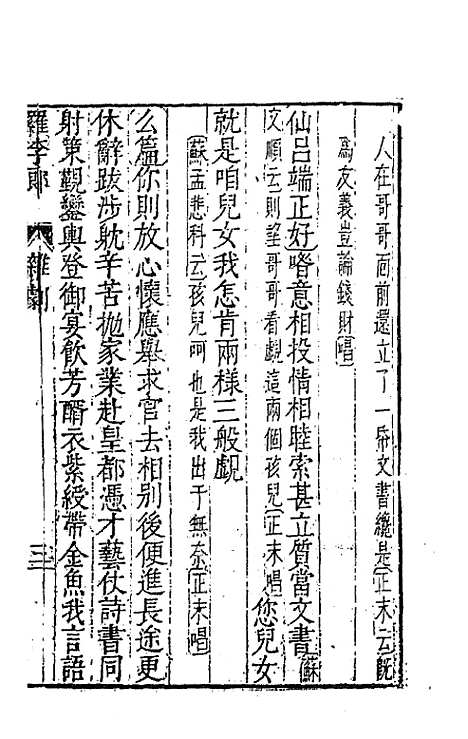 人在哥哥面前還立了一帋文書纔是正末云旣
爲友義豈論錢財唱
仙呂端正好喒意相投情相睦索甚立質當文書蘇
文順云則望哥哥看覷這兩個孩兒正末唱您兒女
就是咱兒女我怎肯兩樣三般覷
蘇孟悲科云孩兒呵也是我出于無奈正末唱
么篇你則放心懷應舉求官去相别後便進長途更
休辭跋涉躭辛苦抛家業赴皇都憑才藝仗詩書同
射策觀鑾輿登御宴飲芳醑衣紫綬帶金魚我言語
羅李郎 雜劇 三